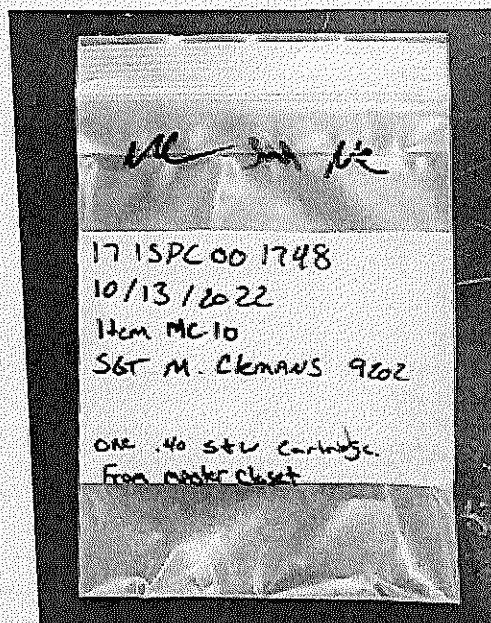 17 ISPC 00 1748
10/13/2022
Item MC 10
SGT M. Clemans 9202
one .40 S+W Cartridge.
From master closet